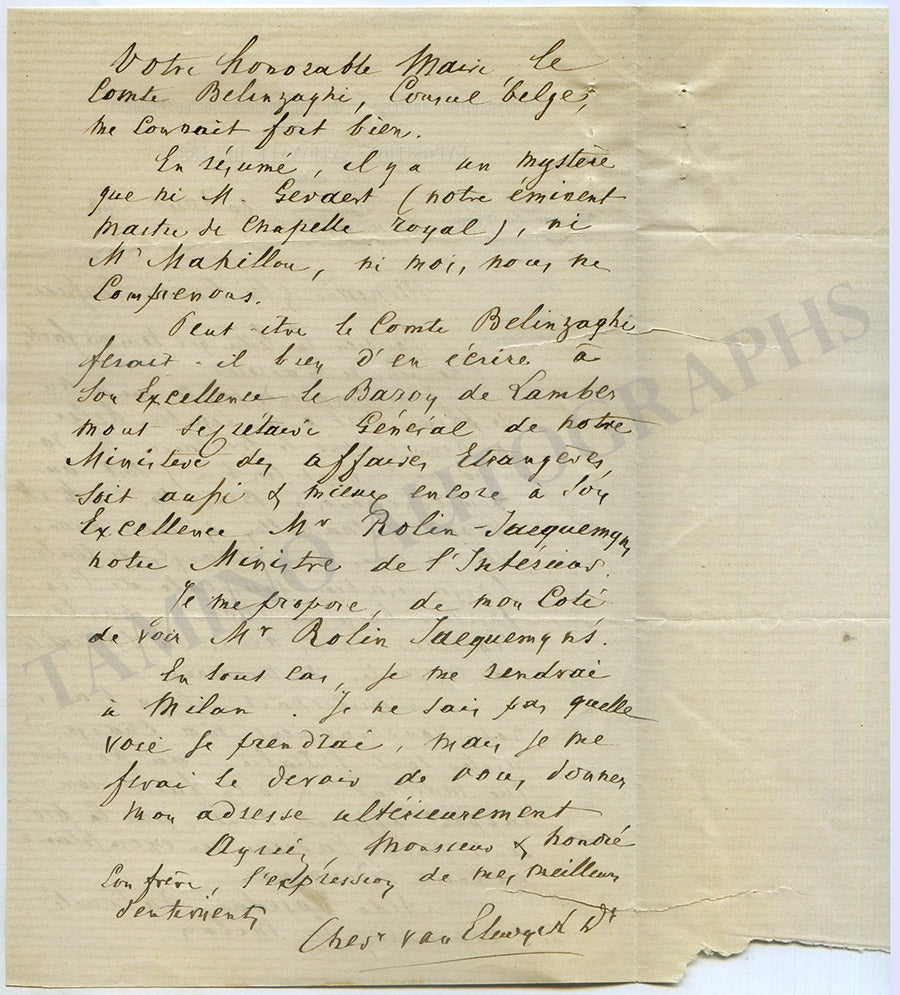 Votre honorable Maire le
Comte Belinzaghi, Consul belge,
me connait fort bien.
En résumé, il y a un mystère
que ni M. Gevaert (notre éminent
maitre de chapelle royal), ni
Mr Mahillon, ni moi, nous ne
comprenons.
Peut-être le Comte Belinzaghi
ferait-il bien d'en écrire à
Son Excellence le Baron de Lamber
mont Secrétaire Général de notre
Ministère des affaires Etrangères,
soit aussi & mieux encore à Son
Excellence Mr Rolin-Jaequemyns
notre Ministre de l'Intérieur.
Je me propose, de mon Coté
de voir Mr Rolin Jaequemyns.
En tout cas, je me rendrai
à Milan. Je ne sais pas quelle
voie je prendrai, mais je me
ferai le devoir de vous donner
mon adresse ultérieurement
Agréez, Monsieur & honoré
Confrère, l'expression de mes meilleurs
sentiments
Chevr van Elewyck Dr
TAMINO AUTOGRAPHS